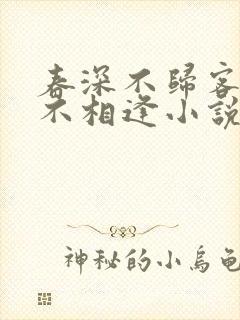 春深不歸客
不相逢小説
神秘的小烏龜